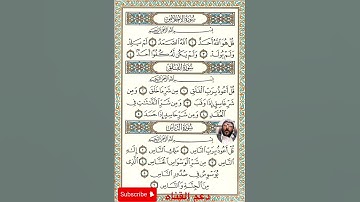 سُورَةُ الإِخْلَاصِ
بِسْمِ اللَّهِ الرَّحْمَٰنِ الرَّحِيمِ
قُلْ هُوَ اللَّهُ أَحَدٌ ١ اللَّهُ الصَّمَدُ ٢ لَمْ يَلِدْ
وَلَمْ يُولَدْ ٣ وَلَمْ يَكُن لَّهُ كُفُوًا أَحَدٌ ٤
سُورَةُ الْفَلَقِ
بِسْمِ اللَّهِ الرَّحْمَٰنِ الرَّحِيمِ
قُلْ أَعُوذُ بِرَبِّ الْفَلَقِ ١ مِن شَرِّ مَا خَلَقَ ٢ وَمِن
شَرِّ غَاسِقٍ إِذَا وَقَبَ ٣ وَمِن شَرِّ النَّفَّاثَاتِ فِي
الْعُقَدِ ٤ وَمِن شَرِّ حَاسِدٍ إِذَا حَسَدَ ٥
سُورَةُ النَّاسِ
بِسْمِ اللَّهِ الرَّحْمَٰنِ الرَّحِيمِ
قُلْ أَعُوذُ بِرَبِّ النَّاسِ ١ مَلِكِ النَّاسِ ٢ إِلَٰهِ
النَّاسِ ٣ مِن شَرِّ الْوَسْوَاسِ الْخَنَّاسِ ٤ الَّذِي
يُوَسْوِسُ فِي صُدُورِ النَّاسِ ٥
مِنَ الْجِنَّةِ وَالنَّاسِ ٦
SUBSCRIBE